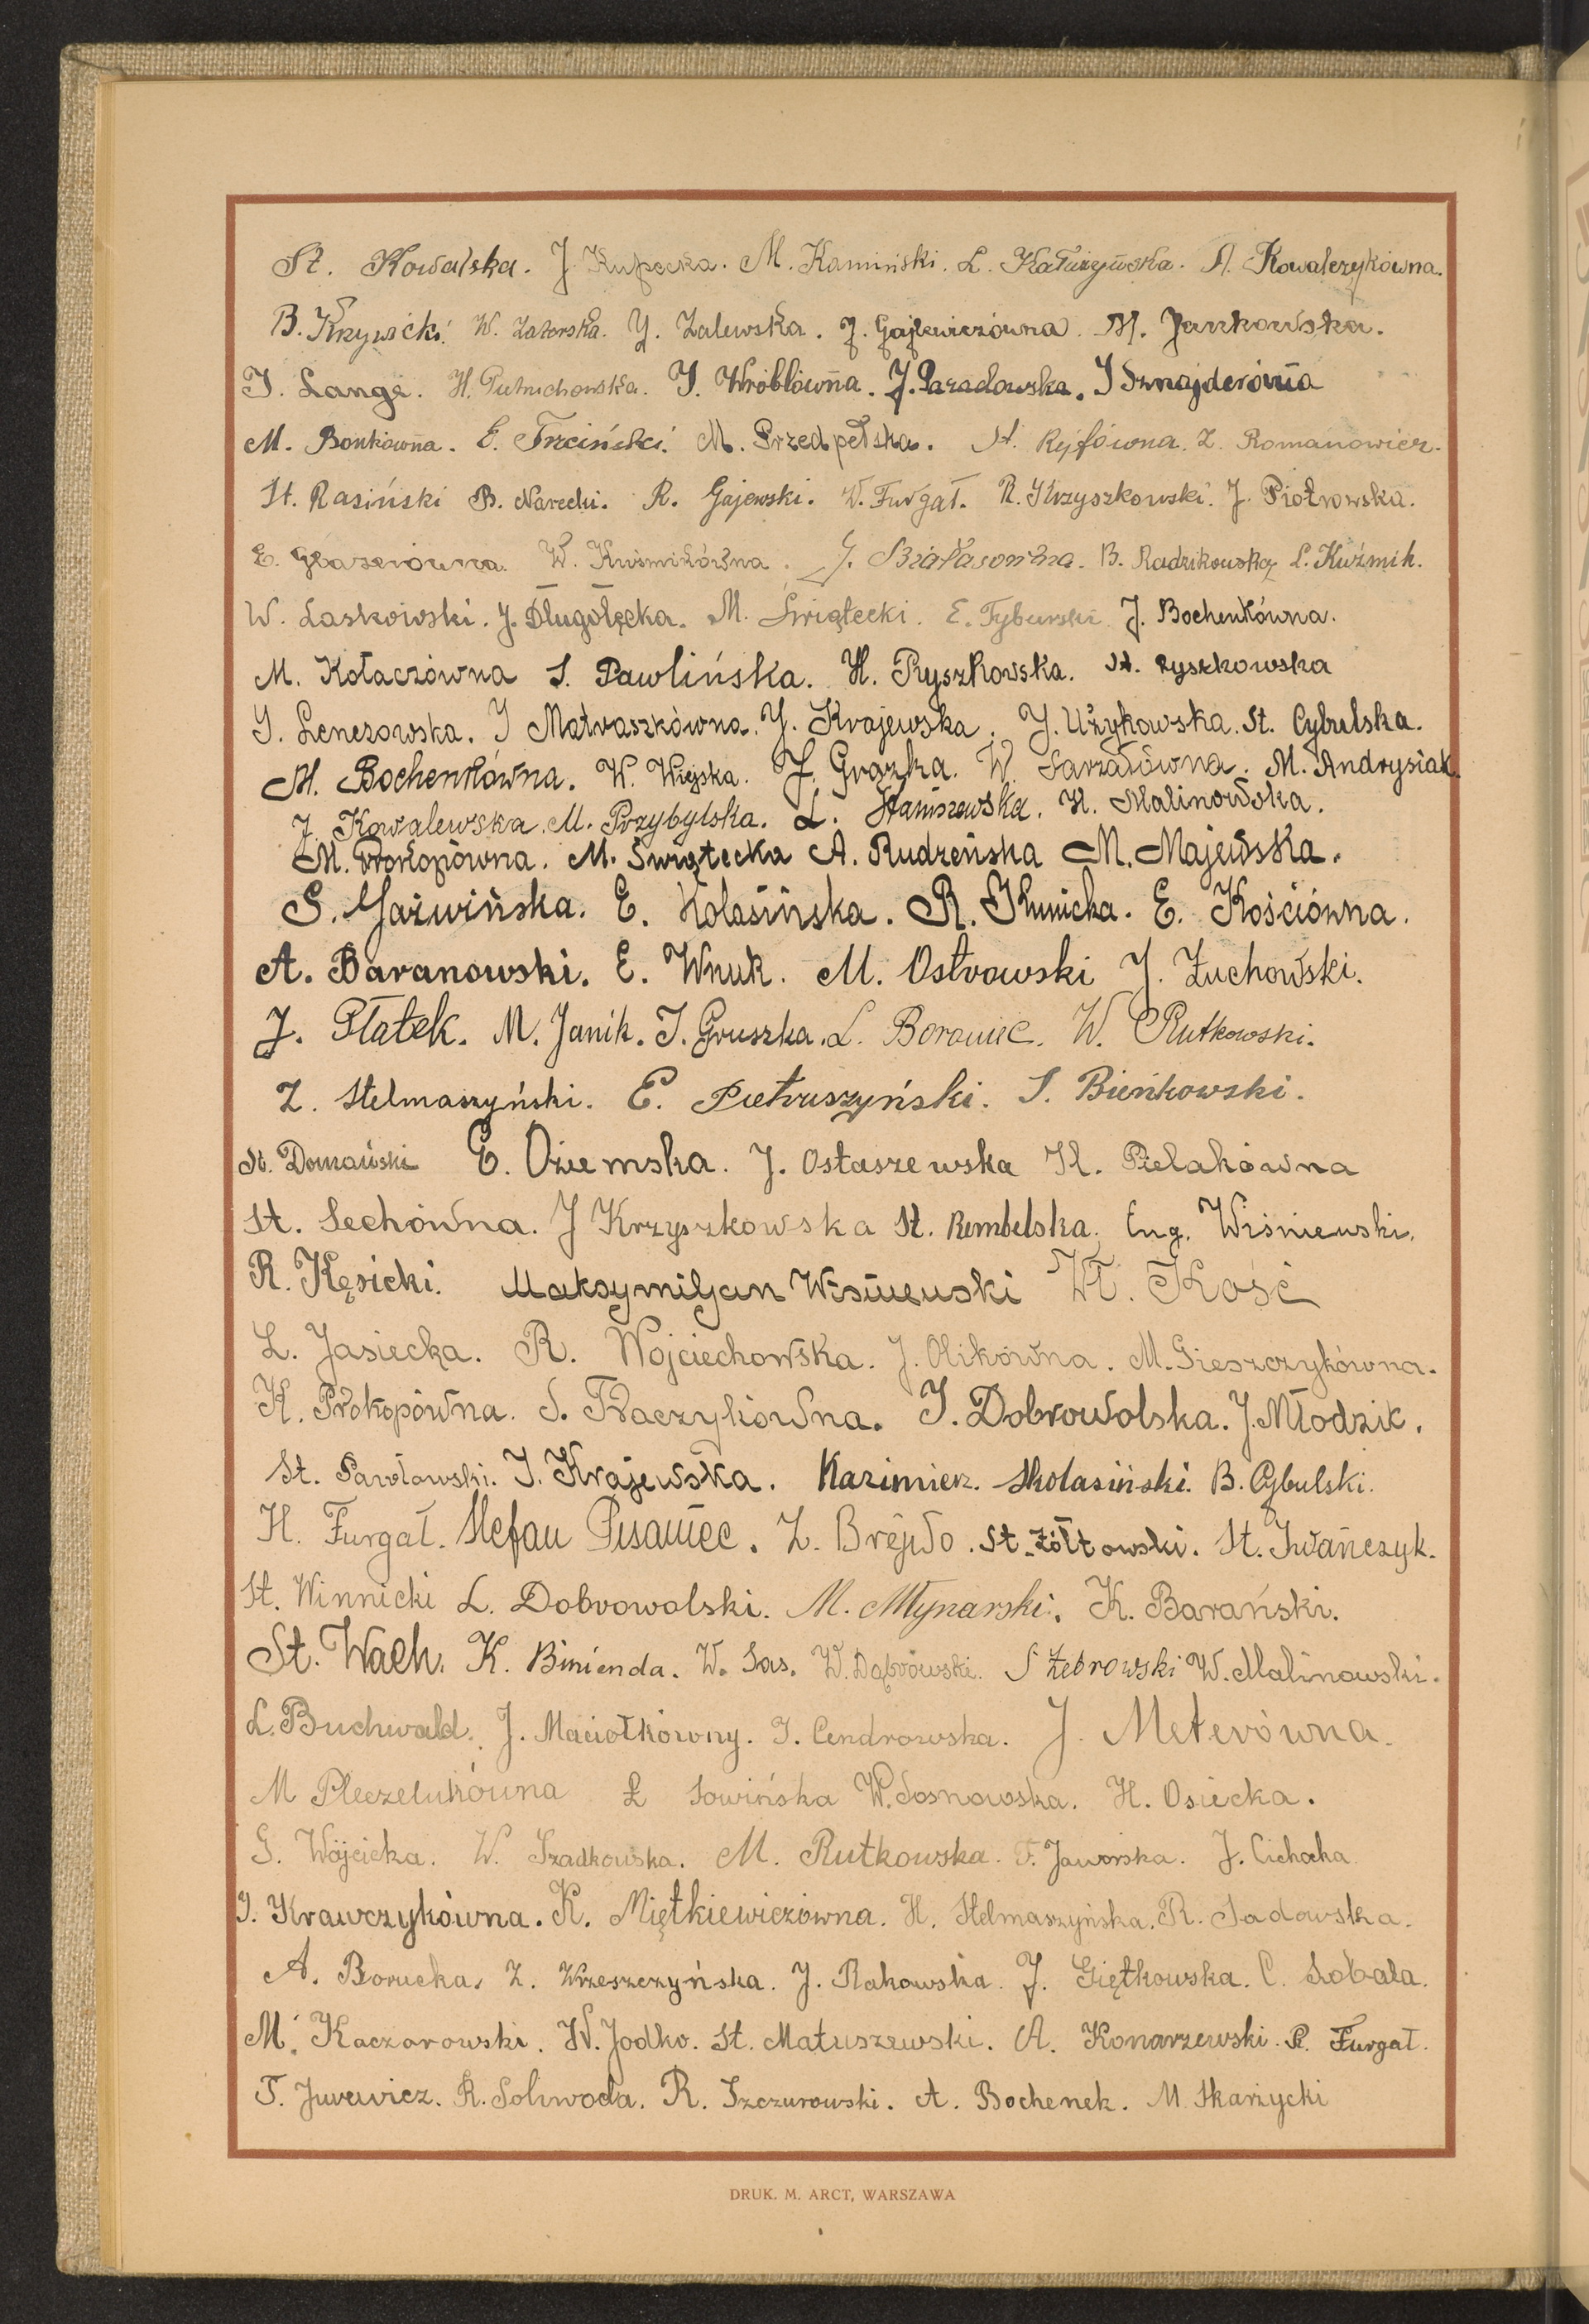 St. Kowalska. J. Kupecka. M. Kamiński. L. Kałużyńska. A. Kowalczykówna.
B. Krzywicki. W. Zatorska. Y. Zalewska. J. Gajlewiczówna. M. Jankowska.
I. Lange. H. Pietruchowska. I. Wróblówna. J. Paradowska. I Sznajderówna
M. Bonkówna. E. Trzciński. M. Przedpełska. St. Ryfówna. Z. Romanowicz.
St. Rasiński B. Narecki. R. Gajewski. W. Furgał. R. Krzyszkowski. J. Piotrowska.
E. Głazerówna. W. Kuśmikówna. J. Białasówna. B. Radzikowska L. Kuźmik.
W. Laskowski. J. Długołęcka. M. Świątecki. E. Tyburski J. Bochenkówna.
M. Kołaczówna S. Pawlińska. H. Ryszkowska. St. Ryszkowska
I. Lenezowska. I Matraszkówna. Y. Krajewska. J. Użykowska. St. Cybulska.
M. Bochenkówna. W. Wiejska. J. Grązka. W. Sarzałówna. M. Andrysiak
J. Kowalewska. M. Przybylska. L. Staniszewska. H. Malinowska.
M. Prokopówna. M. Świątecka A. Rudzeńska M. Majewska.
S. Jaźwińska. E. Kolasińska. R. Kunicka. E. Kościówna.
A. Baranowski. E. Wnuk. M. Ostrowski J. Żuchowski.
J. Płatek. M. Janik. I. Gruszka. L. Borowiec. W. Rutkowski.
Z. Stelmaszyński. E. Pietruszyński. S. Bieńkowski.
St. Domański E. Oziemska. J. Ostaszewska H. Pielakówna
St. Lechówna. J Krzyszkowska St. Rembelska. Eug. Wiśniewski.
R. Kęsicki. Maksymiljan Wiśniewski Wł. Kość
L. Jasiecka. R. Wojciechowska. J. Olikówna. M. Gieszczykówna.
K. Prokopówna. S. Tkaczykówna. I. Dobrowolska. J. Młodzik.
St. Pawłowski. I. Krajewska. Kazimierz. Skolasiński. B. Cybulski.
H. Furgał. Stefan Pisaniec. Z. Brejwo. St. Żółtowski. St. Iwańczyk.
St. Winnicki L. Dobrowolski. M. Młynarski. K. Barański.
St. Wach. K. Binienda. W. Sas. W. Dąbrowski. S Żebrowski W. Malinowski.
L. Buchwald. J. Maciołkówny. I. Cendrowska. J. Meterówna.
M Pleczelukówna Ł Sowińska W. Sosnowska. H. Osiecka.
G. Wójcicka. W. Szadkowska. M. Rutkowska. F. Jaworska. J. Cichocka
I. Krawczykówna. K. Miętkiewiczówna. H. Stelmaszyńska. R. Sadowska.
A. Borucka. Z. Wrzeszczyńska. J. Rakowska. J. Giętkowska. C. Sobala.
M. Kaczorowski. W. Jodko. St. Matuszewski. A. Konarzewski. R. Furgał.
T. Jurewicz. R. Soliwoda. R. Szczurowski. A. Bochenek. M Skarżycki
DRUK. M. ARCT, WARSZAWA